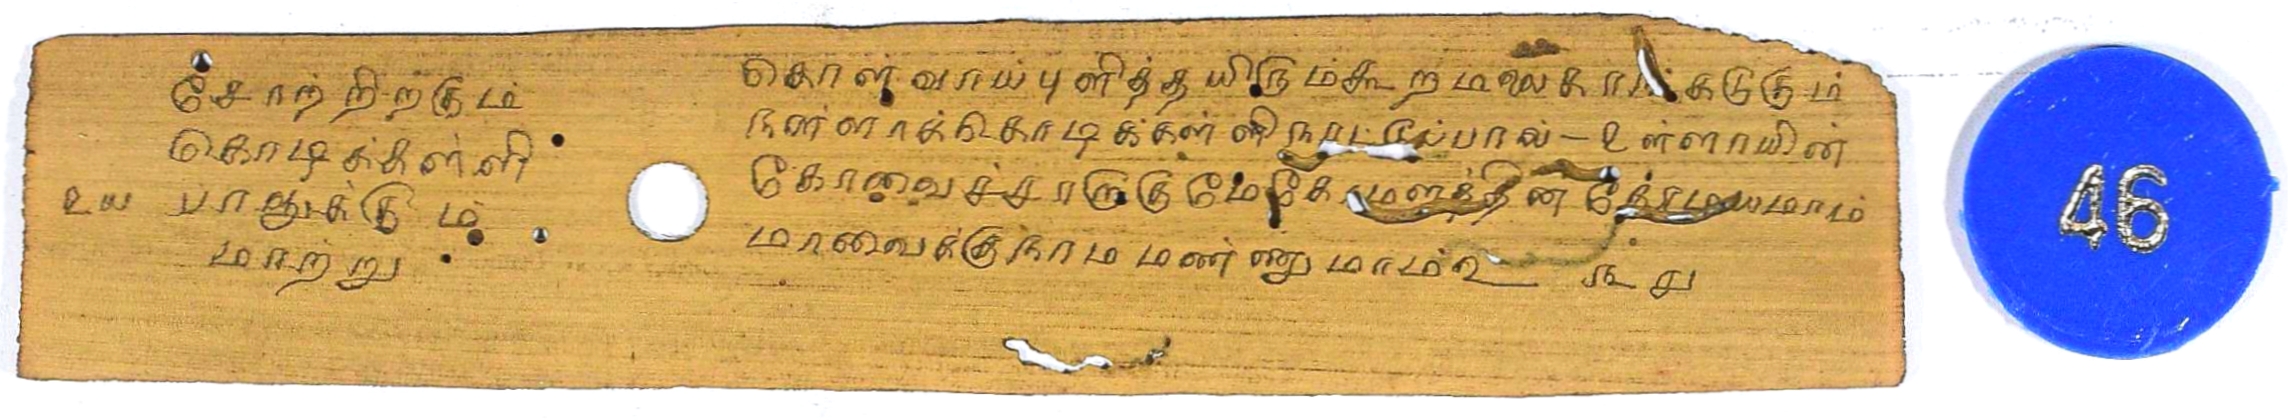 சோற்றிற்கும்
கொடிக்கள்ளி
உய பாலுக்கும்
மாற்று
கொள் வாய்புளித்தயிரும்கூறமலை கடுகும்
நள்ளாக்கொடிக்கள்ளி பால் - உள்ளாயின்
கோவைச்சாருகுமே
மாவைக்குநாமமண்ணுமாம்உ ௩௪
46